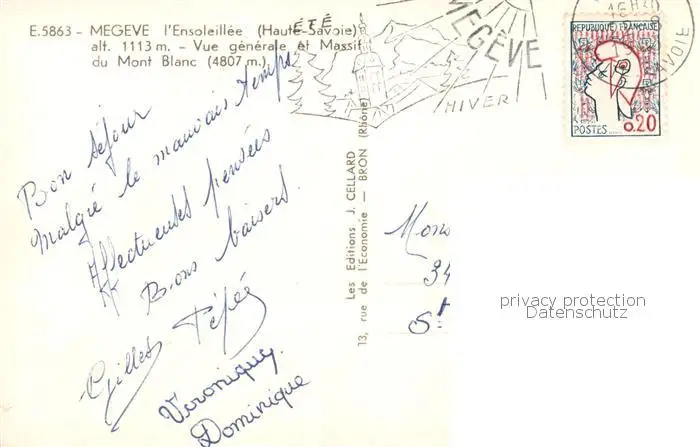 E.5863 - MEGEVE l'Ensoleillée (Haute-Savoie)
alt. 1113 m. - Vue générale et Massif
du Mont Blanc (4807 m.)
ÉTÉ
MEGÈVE
HIVER
16H30
SAVOIE
REPUBLIQUE FRANÇAISE
POSTES
0.20
Bon séjour
malgré le mauvais temps
Affectueuses pensées
Bons baisers.
Gilles Pépée
Véronique.
Dominique
Les Editions J. CELLARD
13, rue de l'Economie — BRON (Rhône)
Mons
34
privacy protection
Datenschutz